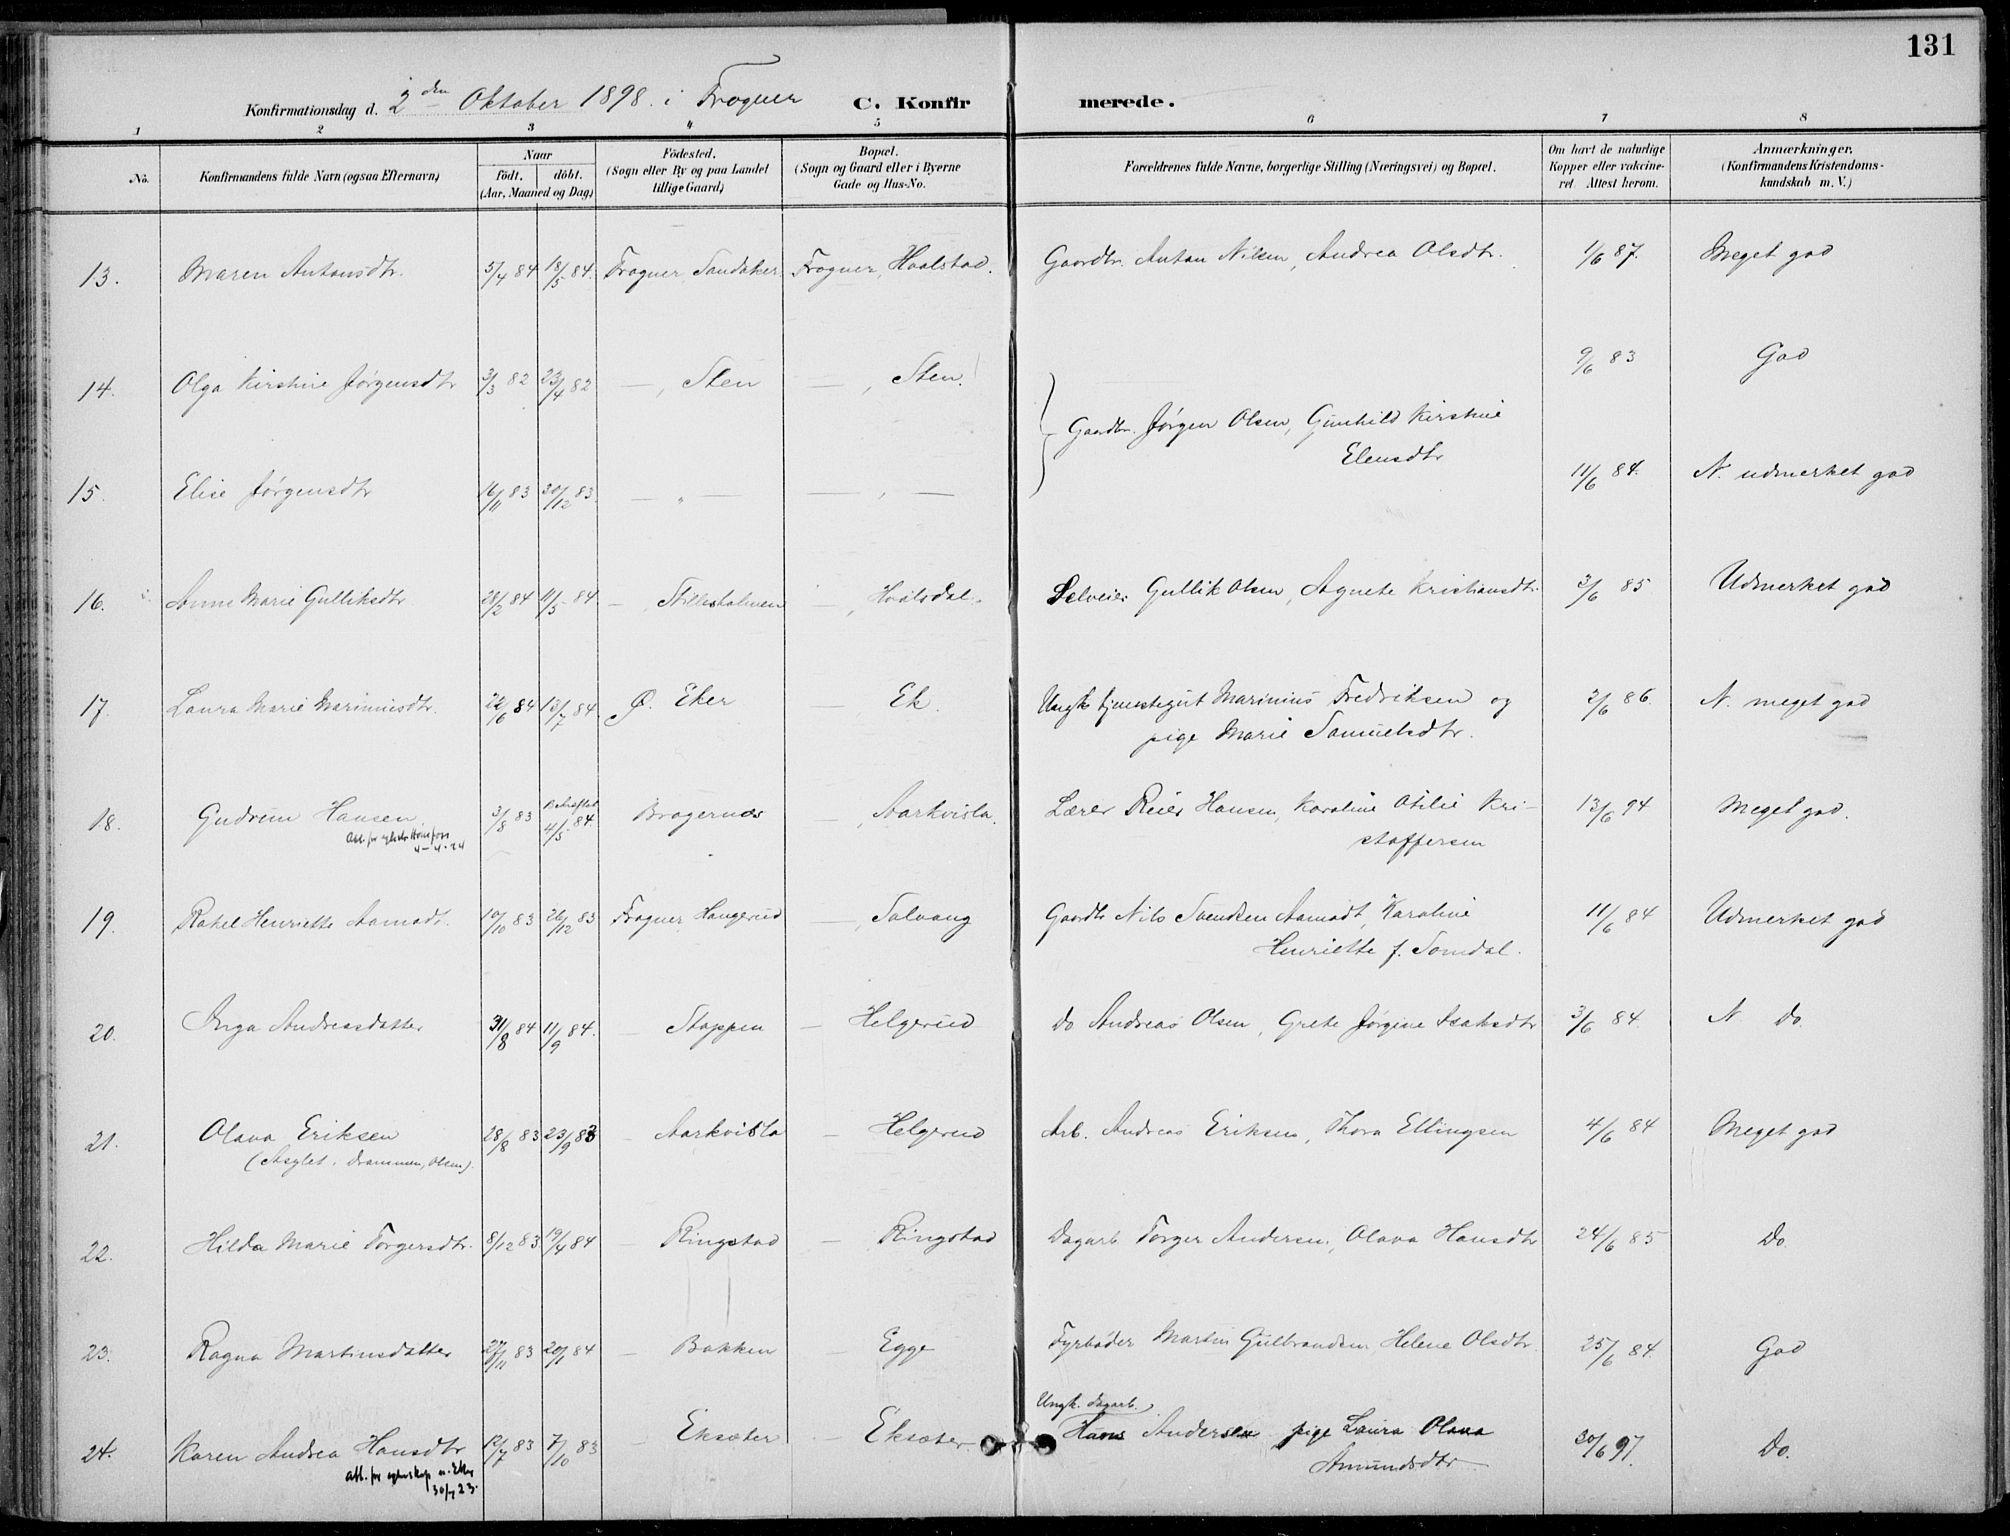 131
Konfirmationsdag d. 2den Oktober 1898 i Frogner C. Konfirmerede.
1 2 3 4 5 6 7 8
No. Konfirmandens fulde Navn (ogsaa Efternavn) Naar födt. döbt. (Aar, Maaned og Dag) Födested. (Sogn eller By og paa Landet tillige Gaard) Bopæl. (Sogn og Gaard eller i Byerne Gade og Hus-No. Forældrenes fulde Navne, borgerlige Stilling (Næringsvei) og Bopæl. Om havt de naturlige Kopper eller vakcineret. Attest herom. Anmærkninger. (Konfirmandens Kristendomskundskab m. V.)
13. Maren Antonsdtr. 5/4 84 18/5 84. Frogner, Sandaker Frogner, Haalstad. Gaardbr. Anton Nilsen, Andrea Olsdtr. 1/6 87. Meget god
14. Olga Kirstine Jørgensdtr 3/3 82 23/4 82 —, Sten —, Sten. 9/6 83 God
Gaardbr. Jørgen Olsen, Gunhild Kirstine
Elensdtr
15. Elise Jørgensdtr 16/11 83 30/12 83. — " — —, — 11/6 84. N. udmerket god
16. Anne Marie Gulliksdtr 28/2 84 11/5 84 — Stilleholmen —, Hvalsdal. Selveier Gullik Olsen, Agnete Kristiansdtr. 3/6 85 Udmerket god
17. Laura Marie Mariniusdtr. 22/6 84 13/7 84. Ø. Eker — Ek Ungk. tjenestegut Marinius Fredriksen og
pige Marie Samuelsdtr. 2/6 86. N. meget god
18. Gudrun Hansen 3/8 83 Bekræftet 4/5 84. Bragernæs —, Aarkvisla. Lærer Reier Hansen, Karoline Otilie Kri-
stoffersen 13/6 94 Meget god.
4-4-24
19. Rakel Henriette Aamodt. 10/10 83 26/12 83 Frogner, Haugerud —, Solvang Gaardbr Nils Svendsen Aamodt, Karoline
Henriette f. Tomdal. 11/6 84 Udmerket god
20. Inga Andreasdatter 31/8 84 11/9 84. — Stoppen — Helgerud do Andreas Olsen, Grete Jørgine Isaksdtr 3/6 84. N do.
21. Olava Eriksen 28/8 83 23/9 83 — Aarkvisla — Helgerud Arb. Andreas Eriksen, Thora Ellingsen 4/6 84 Meget god
(Asylet, Drammen, Olsen).
22. Hilda Marie Torgersdtr. 8/12 83 19/4 84 — Ringstad — Ringstad Dagarb. Torger Andersen, Olava Hansdtr 24/6 85 Do.
23. Ragna Martinsdatter 27/11 83 20/1 84 — Bakken — Egge Fyrbøder Martin Gulbrandsen, Helene Olsdtr. 25/6 84. God
24. Karen Andrea Hansdtr 12/7 83 7/10 83 Eksæter — Eksæter Ungk. Dagarb.
Hans Andersen pige Laura Olava
Amundsdtr 30/6 97. Do.
Att. for egteskap n. Eker
30/1 23.